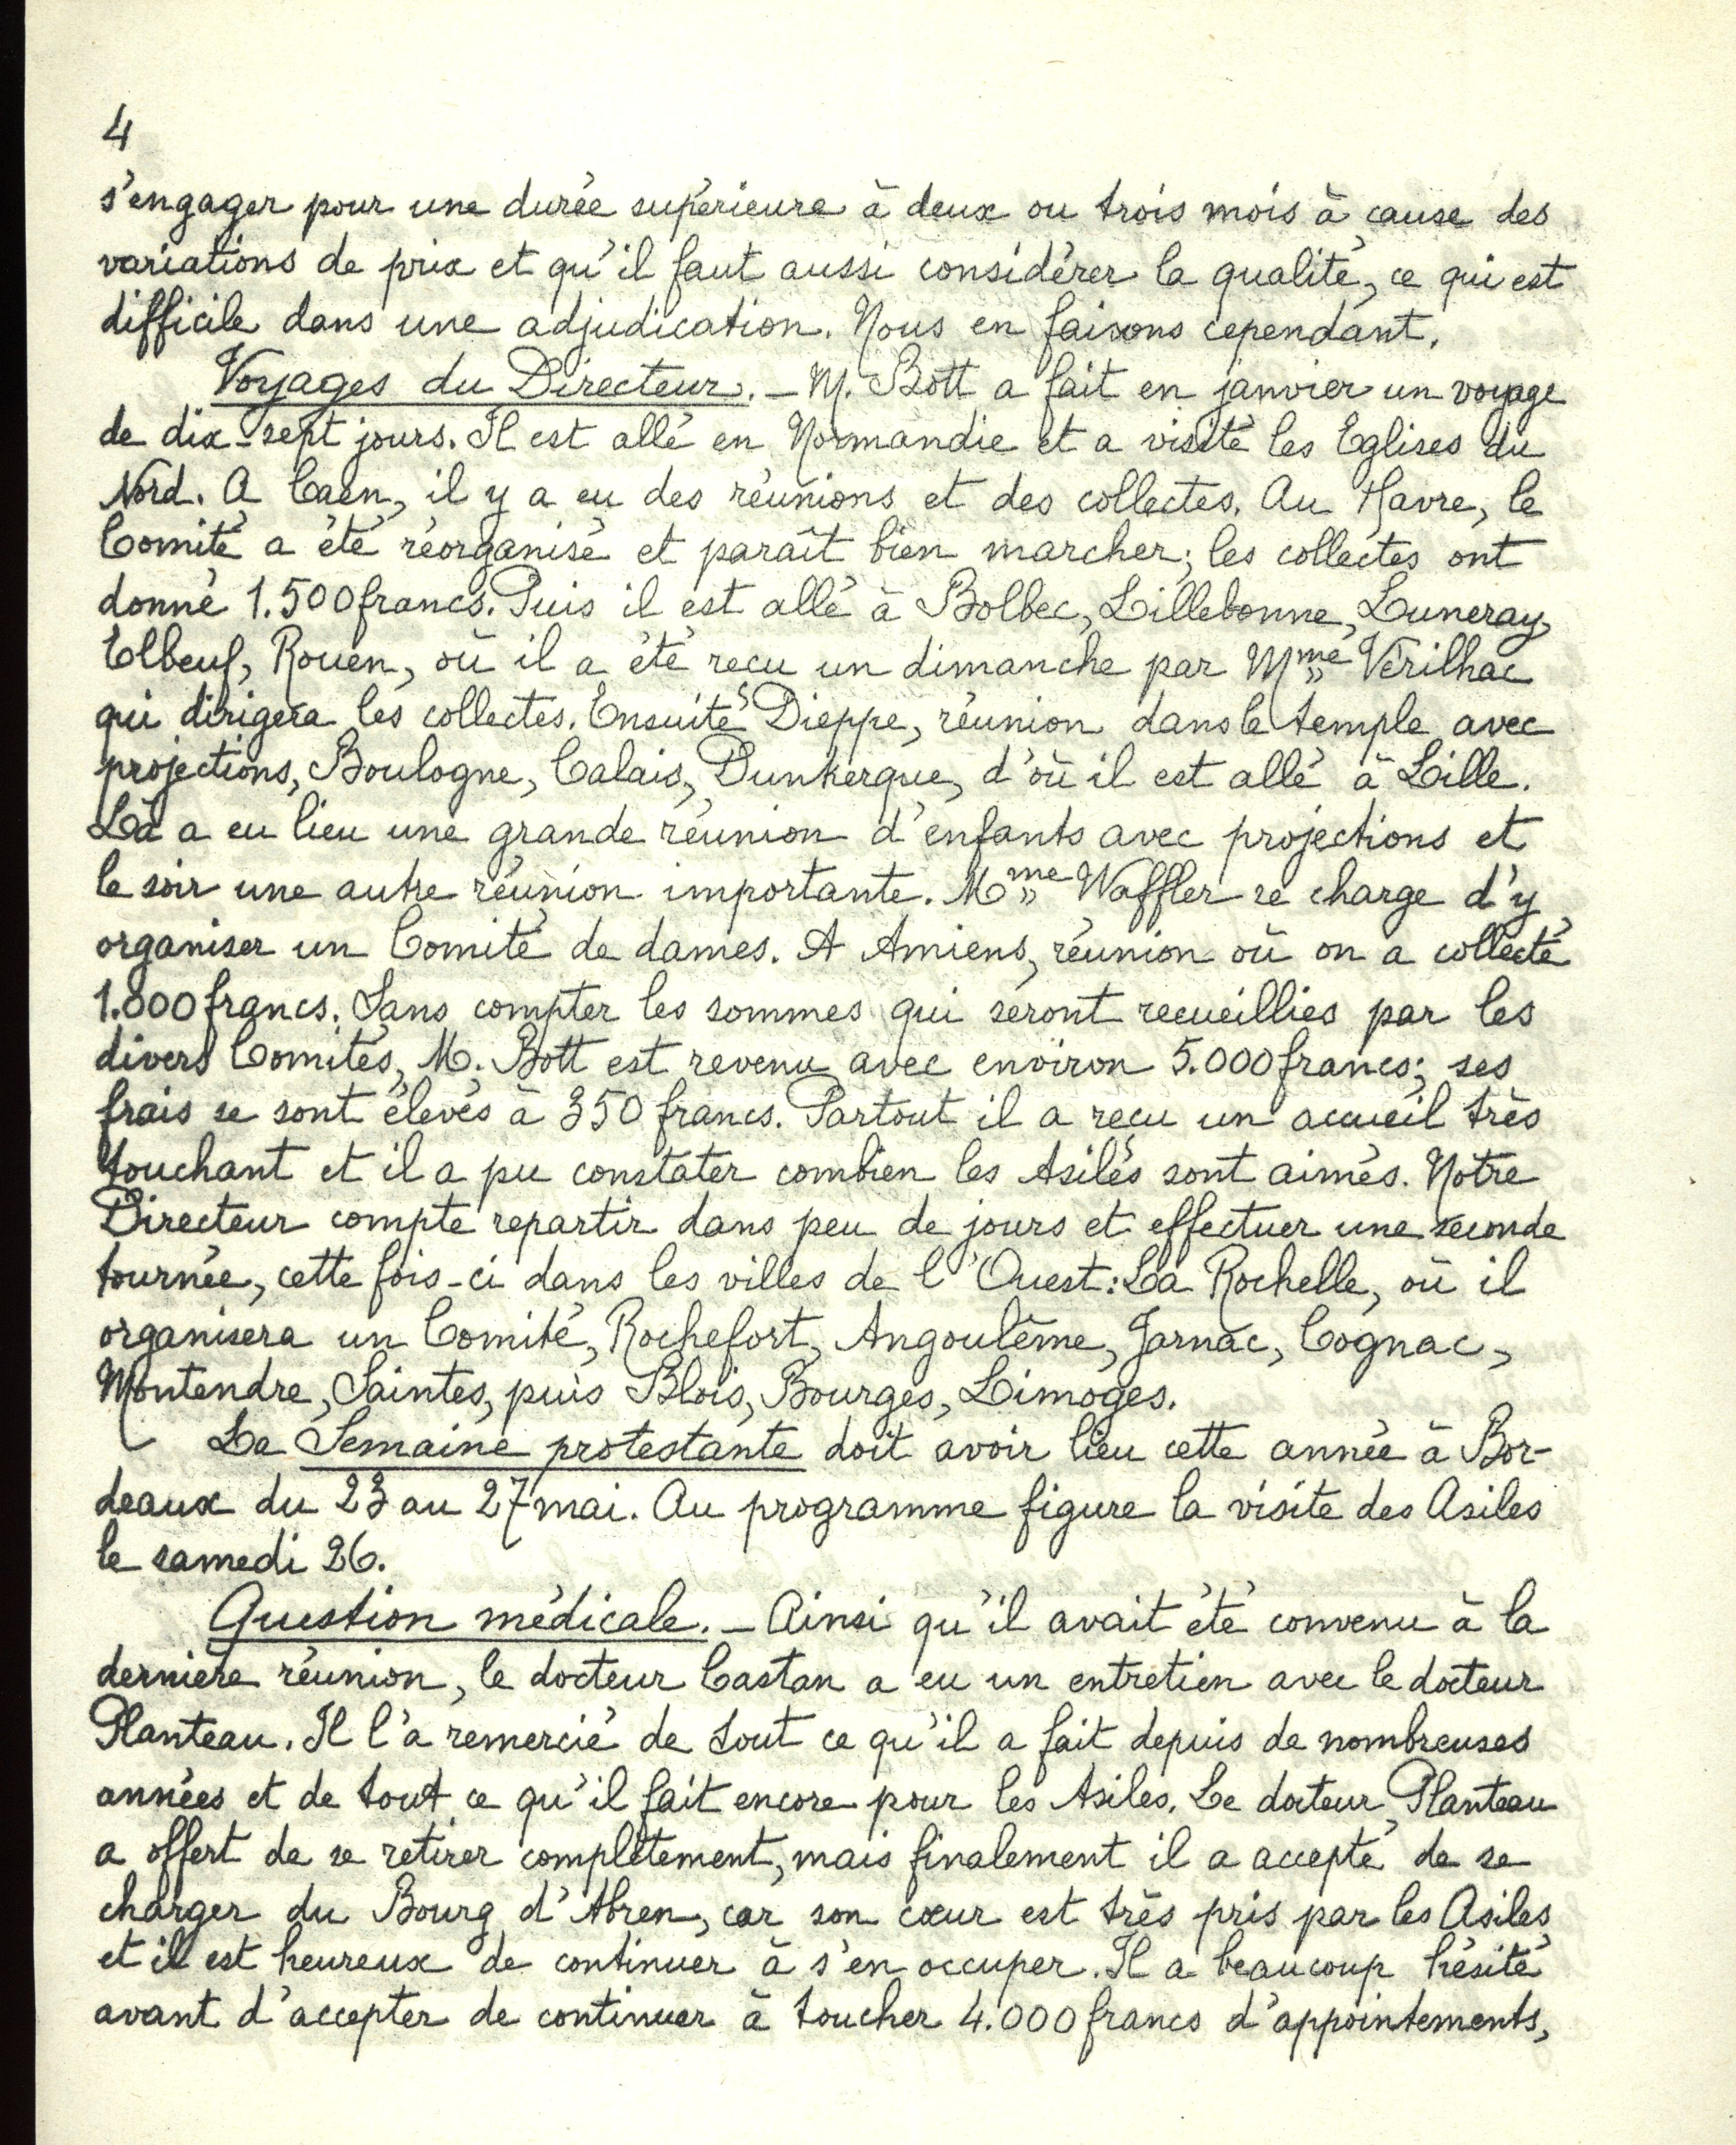 4
s'engager pour une durée supérieure à deux ou trois mois à cause des
variations de prix et qu'il faut aussi considérer la qualité, ce qui est
difficile dans une adjudication. Nous en faisons cependant.
Voyages du Directeur. - M. Bott a fait en janvier un voyage
de dix-sept jours. Il est allé en Normandie et a visité les Eglises du
Nord. A Caen, il y a eu des réunions et des collectes. Au Havre, le
Comité a été réorganisé et paraît bien marcher; les collectes ont
donné 1.500 francs. Puis il est allé à Bolbec, Lillebonne, Luneray,
Elbeuf, Rouen, où il a été reçu un dimanche par Mme Vérilhac
qui dirigera les collectes. Ensuite Dieppe, réunion dans le temple avec
projections, Boulogne, Calais, Dunkerque, d'où il est allé à Lille.
Là a eu lieu une grande réunion d'enfants avec projections et
le soir une autre réunion importante. Mme Waffler se charge d'y
organiser un Comité de dames. A Amiens, réunion où on a collecté
1.000 francs. Sans compter les sommes qui seront recueillies par les
divers Comités, M. Bott est revenu avec environ 5.000 francs; ses
frais se sont élevés à 350 francs. Partout il a reçu un accueil très
touchant et il a pu constater combien les Asiles sont aimés. Notre
Directeur compte repartir dans peu de jours et effectuer une seconde
tournée, cette fois-ci dans les villes de l'Ouest: La Rochelle, où il
organisera un Comité, Rochefort, Angoulême, Jarnac, Cognac,
Montendre, Saintes, puis Blois, Bourges, Limoges.
La Semaine protestante doit avoir lieu cette année à Bor-
deaux du 23 au 27 mai. Au programme figure la visite des Asiles
le samedi 26.
Question médicale. - Ainsi qu'il avait été convenu à la
dernière réunion, le docteur Castan a eu un entretien avec le docteur
Planteau. Il l'a remercié de tout ce qu'il a fait depuis de nombreuses
années et de tout ce qu'il fait encore pour les Asiles. Le docteur Planteau
a offert de se retirer complètement, mais finalement il a accepté de se
charger du Bourg d'Abren, car son cœur est très pris par les Asiles
et il est heureux de continuer à s'en occuper. Il a beaucoup hésité
avant d'accepter de continuer à toucher 4.000 francs d'appointements,